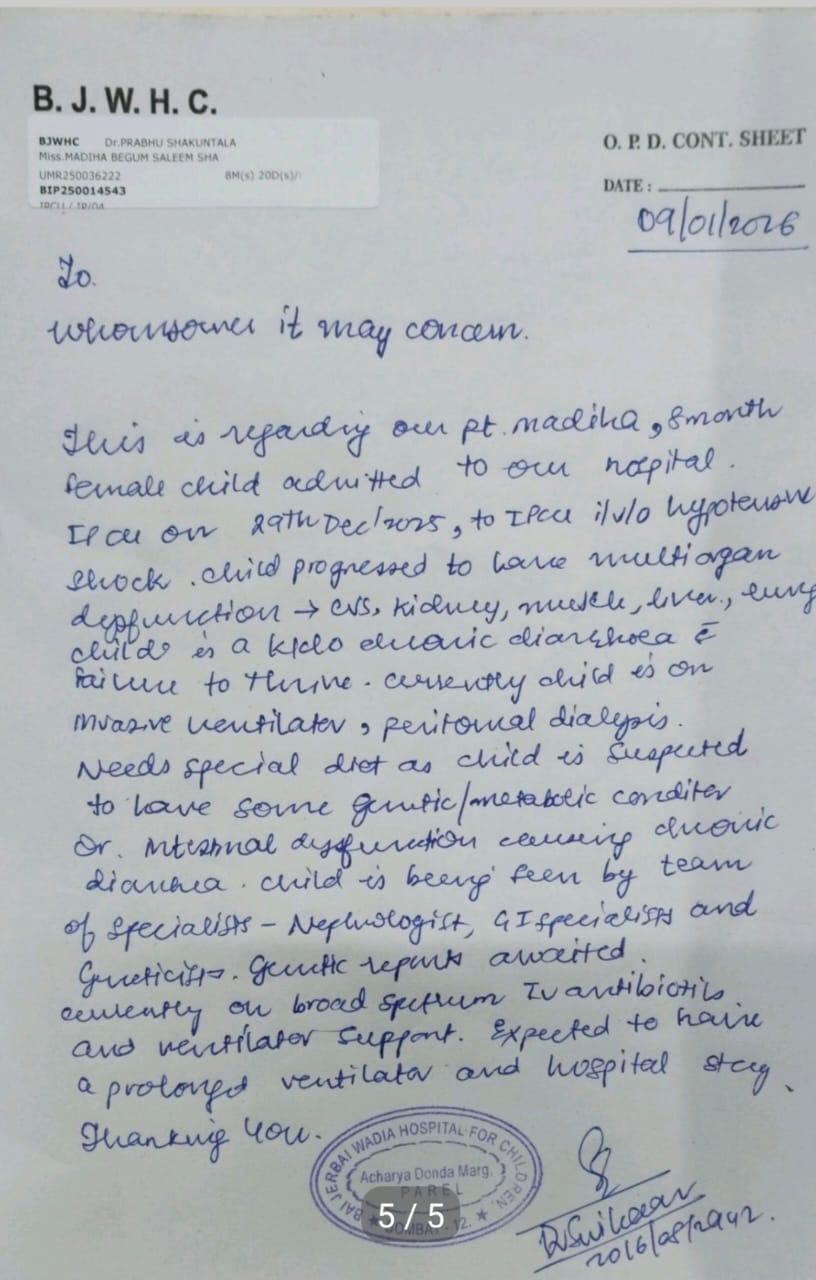 B. J. W. H. C.
BJWHC Dr.PRABHU SHAKUNTALA
Miss.MADIHA BEGUM SALEEM SHA
UMR250036222 8M(s) 20D(s)/
BIP250014543
IPCU / IP/04
O. P. D. CONT. SHEET
DATE :
09/01/2026
To.
whomsoever it may concern.
This is regarding our pt. madiha, 8month
female child admitted to our hospital.
IPCU on 29th Dec'2025, to IPCU i/v/o hypotensive
shock. child progressed to have multiorgan
dysfunction → CVS, kidney, muscle, liver, lung
child is a k/c/o chronic diarrhoea c̄
failure to thrive. currently child is on
invasive ventilator, peritonial dialysis.
Needs special diet as child is suspected
to have some genetic/metabolic conditon
or. intestinal dysfunction causing chronic
diarrhea. child is being seen by team
of specialists - Nephrologist, GI specialists and
Geneticists. Genetic reports awaited.
currently on broad spectrum IV antibiotics
and ventilator support. Expected to have
a prolonged ventilator and hospital stay.
Thanking You.
BAI JERBAI WADIA HOSPITAL FOR CHILDREN.
Acharya Donda Marg.
PAREL
BOMBAY - 12.
5 / 5
2016/08/2942.